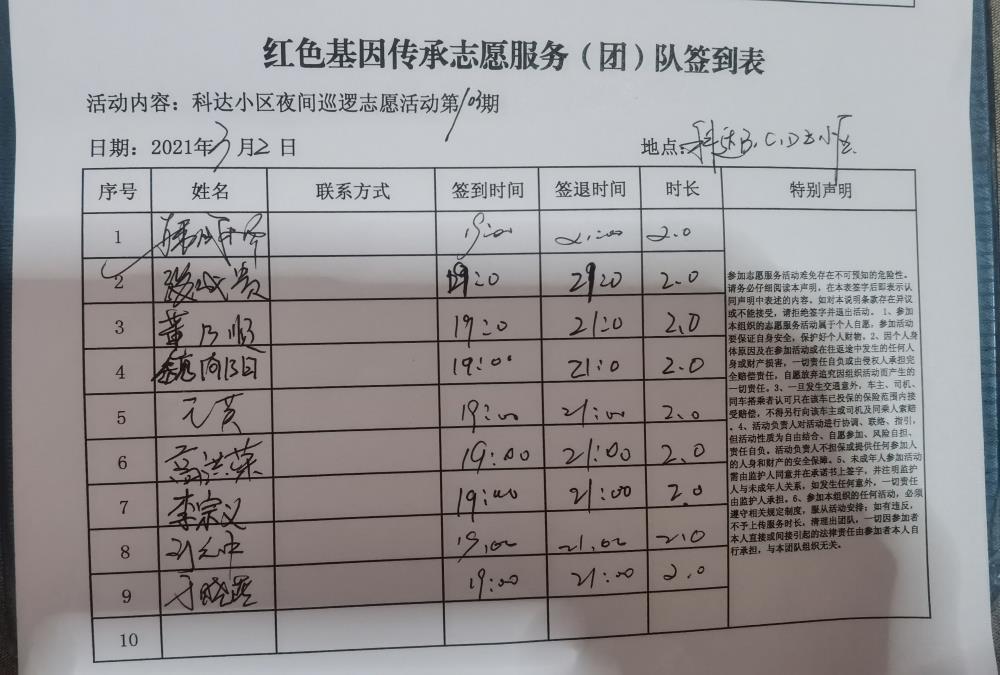 红色基因传承志愿服务（团）队签到表
活动内容：科达小区夜间巡逻志愿活动第103期
日期：2021年3月2日
地点：科达B.C.D区小区
序号 姓名 联系方式 签到时间 签退时间 时长 特别声明
1 19:00 21:00 2.0
2 19:0 21:0 2.0
3 董乃顺 19:0 21:0 2.0
4 魏向阳 19:00 21:0 2.0
5 元黄 19:00 21:00 2.0
6 高洪荣 19:00 21:00 2.0
7 李宗义 19:00 21:00 2.0
8 19:00 21:00 2.0
9 于晓 19:00 21:00 2.0
10
参加志愿服务活动难免存在不可预知的危险性。
请务必仔细阅读本声明，在本表签字后即表示认
同声明中表述的内容。如对本说明条款存在异议
或不能接受，请拒绝签字并退出活动。 1、参加
本组织的志愿服务活动属于个人自愿，参加活动
要保证自身安全，保护好个人财物。2、因个人身
体原因及在参加活动或在往返途中发生的任何人
身或财产损害，一切责任自负或由侵权人承担完
全赔偿责任，自愿放弃追究因组织活动而产生的
一切责任。3、一旦发生交通意外，车主、司机、
同车搭乘者认可只在该车已投保的保险范围内接
受赔偿，不得另行向该车主或司机及同乘人索赔
。4、活动负责人对活动进行协调、联络、指引，
但活动性质为自由结合、自愿参加、风险自担、
责任自负。活动负责人不担保或提供任何参加人
的人身和财产的安全保障。5、未成年人参加活动
需由监护人同意并在承诺书上签字，并注明监护
人与未成年人关系，如发生任何意外，一切责任
由监护人承担。6、参加本组织的任何活动，必须
遵守相关规定制度，服从活动安排；如有违反，
不予上传服务时长，清理出团队，一切因参加者
本人直接或间接引起的法律责任由参加者本人自
行承担，与本团队组织无关。